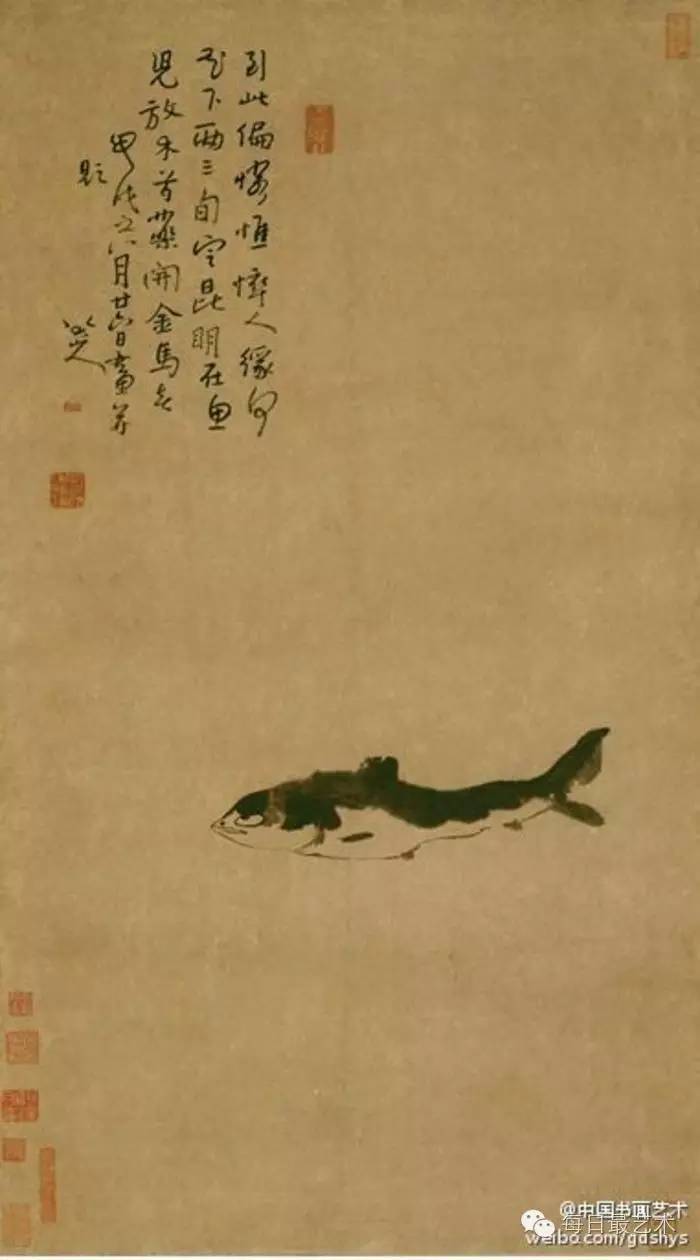 到此偏憐憔悴人緣何
花下兩三旬定昆明在魚
兒放木芍藥開金馬春
甲戌之八月廿六日畫并
題
八大山人
@中国书画艺术
每日最艺术
weibo.com/gdshys